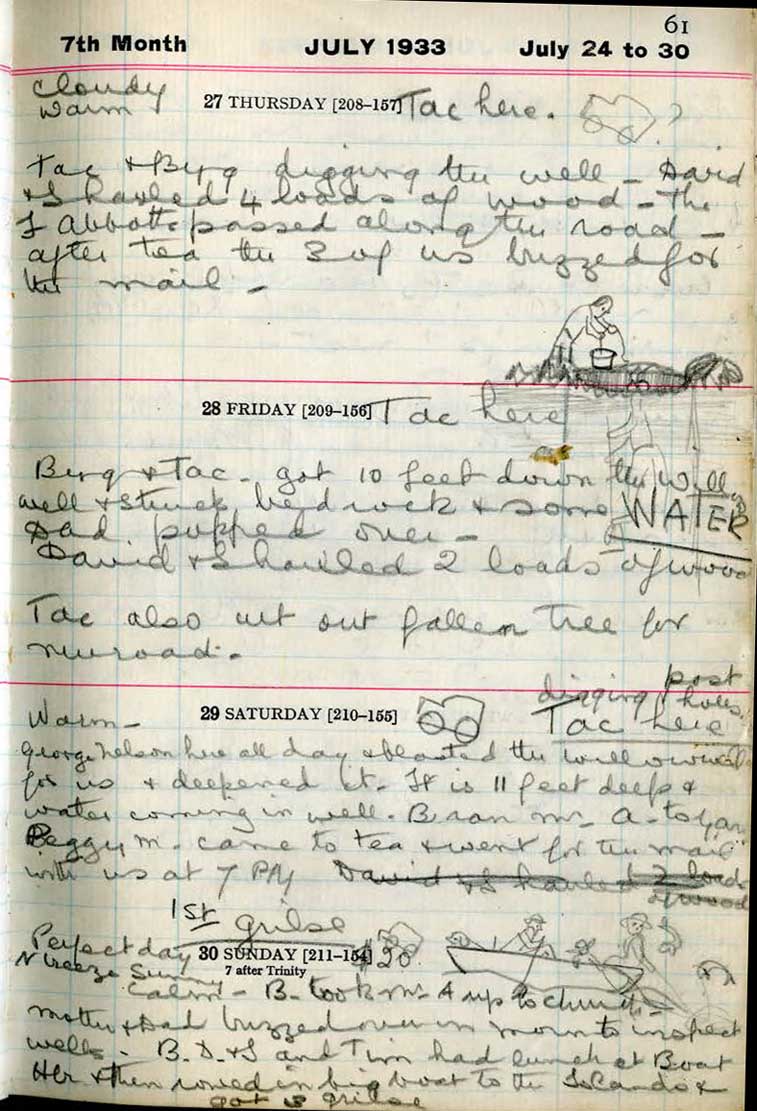 61
7th Month JULY 1933 July 24 to 30
cloudy
warm 27 THURSDAY [208–157] Tac here. ?
Tac & Byrg digging the well – David
& I hauled 4 loads of wood – The
J Abbotts passed along the road –
after tea the 3 of us buzzed for
the mail –
28 FRIDAY [209–156] Tac here
Byrg & Tac – got 10 feet down the well
well & struck bedrock & some WATER
Dad popped over –
David & I hauled 2 loads of wood
Tac also cut out fallen tree for
new road. –
digging post holes.
Warm – 29 SATURDAY [210–155] Tac here
George Nelson here all day & blasted the well
for us & deepened it. It is 11 feet deep &
water coming in well. B ran Mr. A. to
Peggy M. came to tea & went for the mail
with us at 7 PM David & I hauled 2 loads
of wood
1st grilse
Perfect day 30 SUNDAY [211–154] $20
N breeze Sunny 7 after Trinity
Calm – B. took Mr. A up to church –
Mother & Dad buzzed over in morn to inspect
wells – B. D. & I and Tim had lunch at Boat
Hbr & then rowed in big boat to the Islands &
got 3 grilse